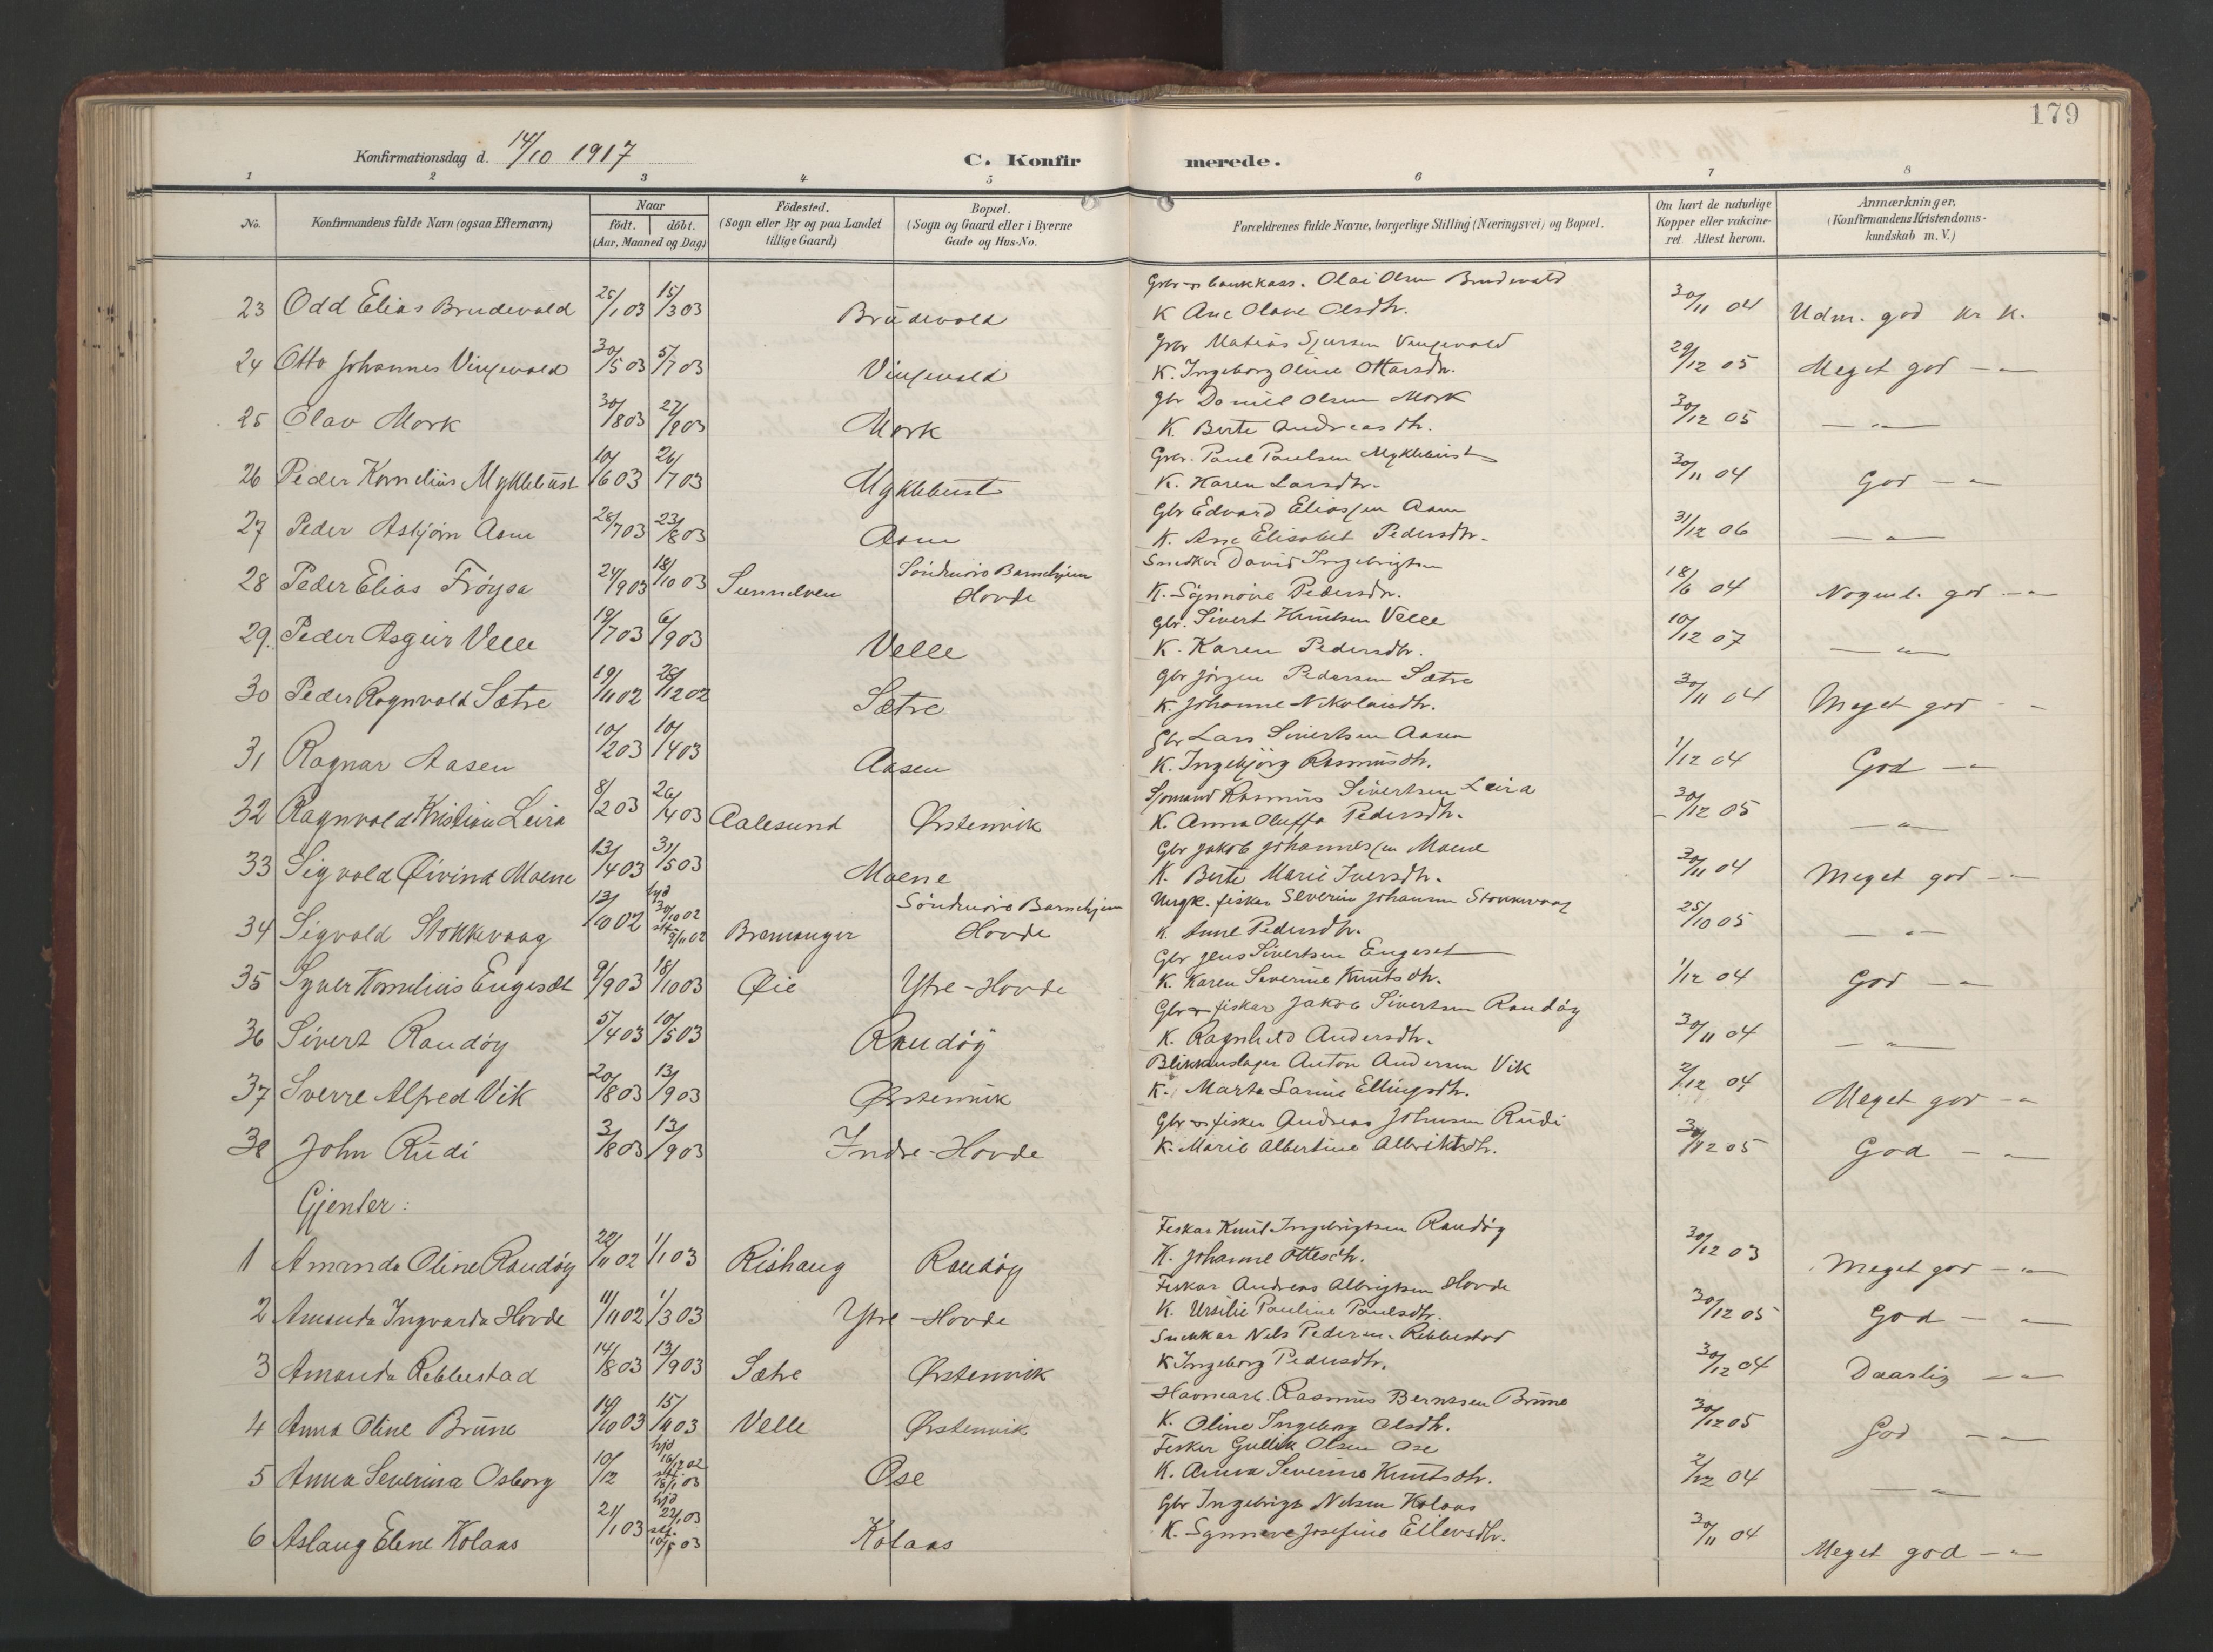 179
Konfirmationsdag d. 14/10 1917
C. Konfirmerede.
1 2 3 4 5 6 7 8
No.
Konfirmandens fulde Navn (ogsaa Efternavn)
Naar
födt. döbt.
(Aar, Maaned og Dag)
Födested.
(Sogn eller By og paa Landet
tillige Gaard)
Bopæl.
(Sogn og Gaard eller i Byerne
Gade og Hus-No.
Forældrenes fulde Navne, borgerlige Stilling (Næringsvei) og Bopæl.
Om havt de naturlige
Kopper eller vakcine-
ret Attest herom.
Anmærkninger,
(Konfirmandens Kristendoms-
kundskab m. V.)
Gbr og bankkass. Olai Olsen Brudevold
23 Odd Elias Brudevold 25/1 03 15/3 03 Brudevold K Ane Olave Olsdtr. 30/11 04 Udm. god kr K.
Gbr Matias Sjursen Vingevold
24 Otto Johannes Vingevold 30/5 03 5/7 03 Vingevold K. Ingeborg Oline Ottarsdtr. 29/12 05 Meget god — " —
Gbr Daniel Olsen Mork
25 Olav Mork 30/8 03 27/9 03 Mork K. Berte Andreasdtr. 30/12 05 — " —
Gbr. Paul Paulsen Myklebust
26 Peder Kornelius Myklebust 10/6 03 26/7 03 Myklebust K. Karen Larsdtr. 30/11 04 God — " —
Gbr Edvard Eliassen Aam
27 Peder Asbjørn Aam 28/7 03 23/8 03 Aam K. Ane Elisabet Pedersdtr. 31/12 06 — " —
Snedker David Ingebrigtsen
28 Peder Elias Frøysa 24/9 03 18/10 03 Sunnelven Søndmøre Barnehjem Hovde K. Synnøve Pedersdtr. 18/6 04 Nogenl. god — " —
Gbr. Sivert Knutsen Velle
29. Peder Asgeir Velle 19/7 03 6/9 03 Velle K. Karen Pedersdtr. 10/12 07 — " —
Gbr Jørgen Pedersen Sætre
30 Peder Ragnvald Sætre 19/11 02 26/12 02 Sætre K. Johanne Nikolaisdtr. 30/11 04 Meget god — " —
Gbr Lars Sivertsen Aasen
31 Ragnar Aasen 10/2 03 10/4 03 Aasen K. Ingebjørg Rasmusdtr. 1/12 04 God — " —
Sjømand Rasmus Sivertsen Leira
32 Ragnvald Kristian Leira 8/2 03 26/4 03 Aalesund Ørstenvik K. Anna Oluffa Pedersdtr. 30/12 05 — " —
Gbr Jakob Johannessen Moene
33 Sigvald Øivind Moene 13/4 03 31/5 03 Moene K. Berte Marie Iversdtr. 30/11 04 Meget god — " —
Ungk. fisker Severin Johansen Stokkevaag
34 Sigvald Stokkevaag 13/10 02 hjd 30/10 02 stf. 9/11 02 Bremanger Søndmøre Barnehjem Hovde K. Anne Pedersdtr. 25/10 05 — " —
Gbr Jens Sivertsen Engeset
35 Syver Kornelius Engeset 9/9 03 18/10 03 Øie Ytre-Hovde K. Karen Severine Knutsdtr. 1/12 04 God — " —
Gbr og fisker Jakob Sivertsen Raudøy
36 Sivert Raudøy 5/4 03 10/5 03 Raudøy K. Ragnhild Andersdtr. 30/11 04 — " —
Blikkenslager Anton Andersen Vik
37 Sverre Alfred Vik 20/8 03 13/9 03 Ørstenvik K. Marta Larine Ellingsdtr. 2/12 04 Meget god — " —
Gbr og fisker Andreas Johnsen Rudi
38 John Rudi 3/8 03 13/9 03 Indre-Hovde K. Marie Albertine Albriktsdtr. 30/12 05 God — " —
Gjenter:
Fisker Knut Ingebrigtsen Raudøy
1 Amanda Oline Raudøy 22/11 02 1/1 03 Rishaug Raudøy K. Johanne Ottesdtr. 30/12 03 Meget god — " —
Fisker Andreas Albrigtsen Hovde
2 Amanda Ingvarda Hovde 11/11 02 1/3 03 Ytre-Hovde K. Ursilie Pauline Paulsdtr. 30/12 05 God — " —
Snekkar Nels Pedersen Rebbestad
3 Amanda Rebbestad 14/8 03 13/9 03 Sætre Ørstenvik K Ingeborg Pedersdtr. 30/12 04 Daarlig — " —
Havnearb. Rasmus Berntsen Brune
4 Anna Oline Brune 14/10 03 15/11 03 Velle Ørstenvik K. Oline Ingeborg Olsdtr. 30/12 05 God — " —
Fisker Gullik Olsen Ose
5 Anna Severina Osborg 10/12 hjd 16/12 02 stf. 18/1 03 Ose K. Anna Severine Knutsdtr. 2/12 04 — " —
Gbr Ingebrigt Nelsen Kolaas
6 Aslaug Elene Kolaas 21/1 03 hjd 22/1 03 stf. 10/5 03 Kolaas K. Synneve Josefine Eilevsdtr. 30/11 04 Meget god — " —